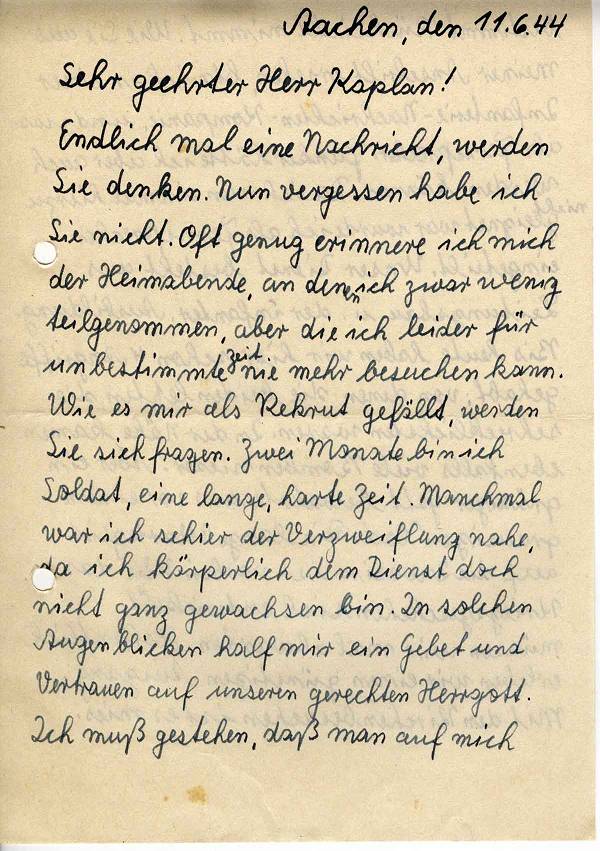 Aachen, den 11.6.44
Sehr geehrter Herr Kaplan!
Endlich mal eine Nachricht, werden
Sie denken. Nun vergessen habe ich
Sie nicht. Oft genug erinnere ich mich
der Heimabende, an denen ich zwar wenig
teilgenommen, aber die ich leider für
unbestimmte Zeit nie mehr besuchen kann.
Wie es mir als Rekrut gefällt, werden
Sie sich fragen. Zwei Monate bin ich
Soldat, eine lange, harte Zeit. Manchmal
war ich schier der Verzweiflung nahe,
da ich körperlich dem Dienst doch
nicht ganz gewachsen bin. In solchen
Augenblicken half mir ein Gebet und
Vertrauen auf unseren gerechten Herrgott.
Ich muß gestehen, daß man auf mich